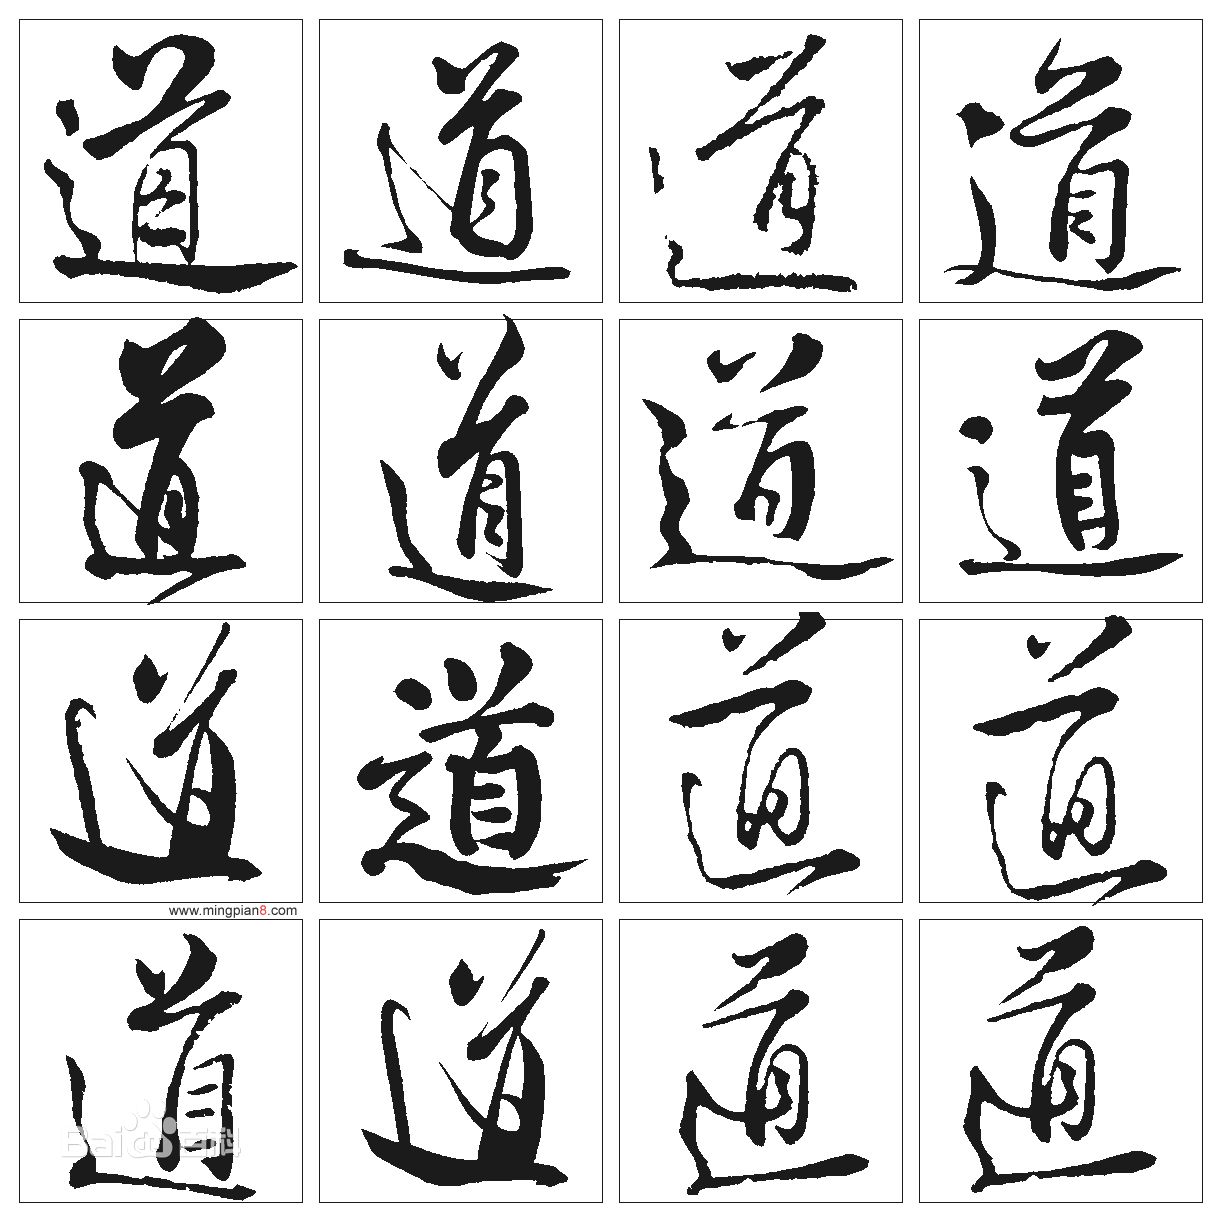 道 道 道 道
道 道 道 道
道 道 道 道
www.mingpian8.com
道 道 道 道
Baidu百科